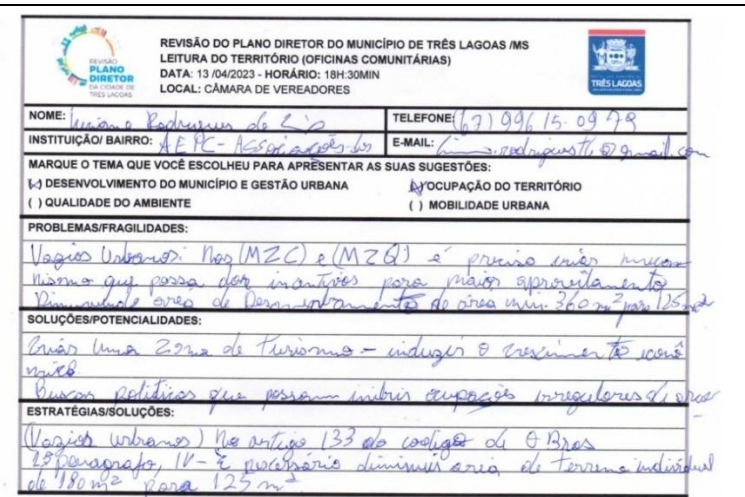 REVISÃO
PLANO
DIRETOR
DA CIDADE DE
TRÊS LAGOAS
REVISÃO DO PLANO DIRETOR DO MUNICÍPIO DE TRÊS LAGOAS /MS
LEITURA DO TERRITÓRIO (OFICINAS COMUNITÁRIAS)
DATA: 13 /04/2023 - HORÁRIO: 18H:30MIN
LOCAL: CÂMARA DE VEREADORES
TRÊS LAGOAS
NOME: Rodrigues de
TELEFONE: (67) 99615-0979
INSTITUIÇÃO/ BAIRRO: AEPC - Associação
E-MAIL: @gmail.com
MARQUE O TEMA QUE VOCÊ ESCOLHEU PARA APRESENTAR AS SUAS SUGESTÕES:
(x) DESENVOLVIMENTO DO MUNICÍPIO E GESTÃO URBANA
(x) OCUPAÇÃO DO TERRITÓRIO
( ) QUALIDADE DO AMBIENTE
( ) MOBILIDADE URBANA
PROBLEMAS/FRAGILIDADES:
Vagios Urbanos: Nas (MZC) e (MZQ) é preciso criar mecan
nismo que possa dar incentivos para maior aproveitamento
área de Desmembramento de área min. 360 m² para 125 m²
SOLUÇÕES/POTENCIALIDADES:
Criar uma Zona de Turismo - induzir o crescimento econô
mico
Buscar politicas que possam inibir ocupações irregulares de
ESTRATÉGIAS/SOLUÇÕES:
(Vagios urbanos) No artigo 133 do codigo de OBras
2º paragrafo, IV - É necessário diminuir area de terreno individual
de 180 m² para 125 m²